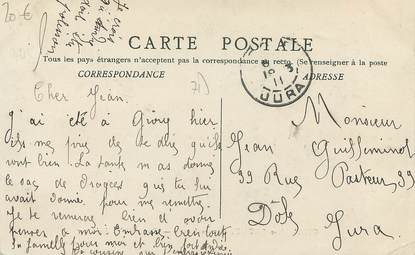 20 €
Je crois
CARTE POSTALE
Tous les pays étrangers n'acceptent pas la correspondance au recto. (Se renseigner à la poste)
CORRESPONDANCE
ADRESSE
JURA
Cher Jean.
J'ai été à Givry hier
ils me prié de te dire qu'ils
vont bien. La tante m'as donné
le sac de Dragées que tu lui
avait donné pour me remettre.
Je te remercie bien d'avoir
penser à moi. Embrasse bien toute
ta famille pour moi et
Monsieur
Jean Guilleminot
39 Rue Pasteur 39
Dôle
Jura.